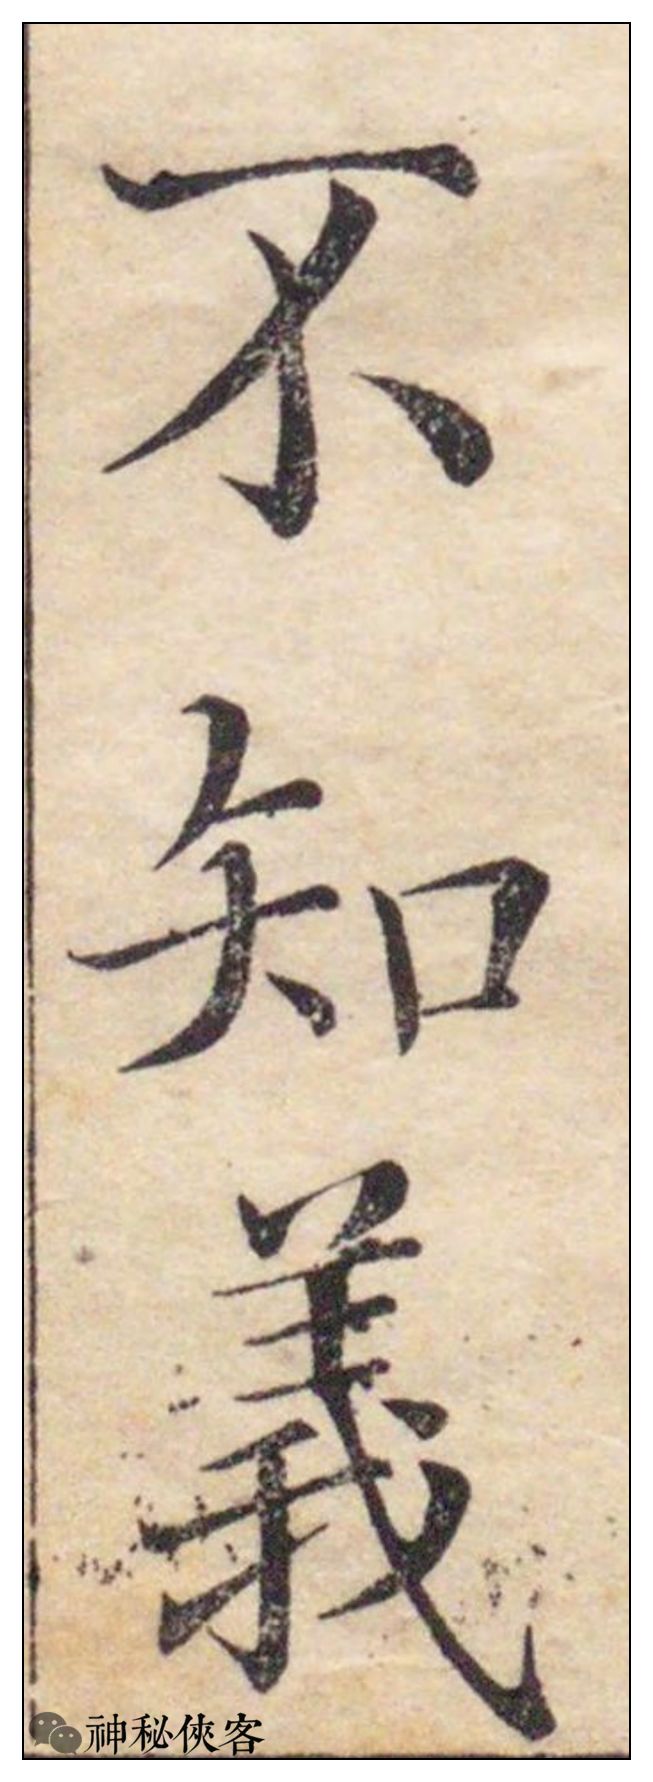 不知義
神秘俠客